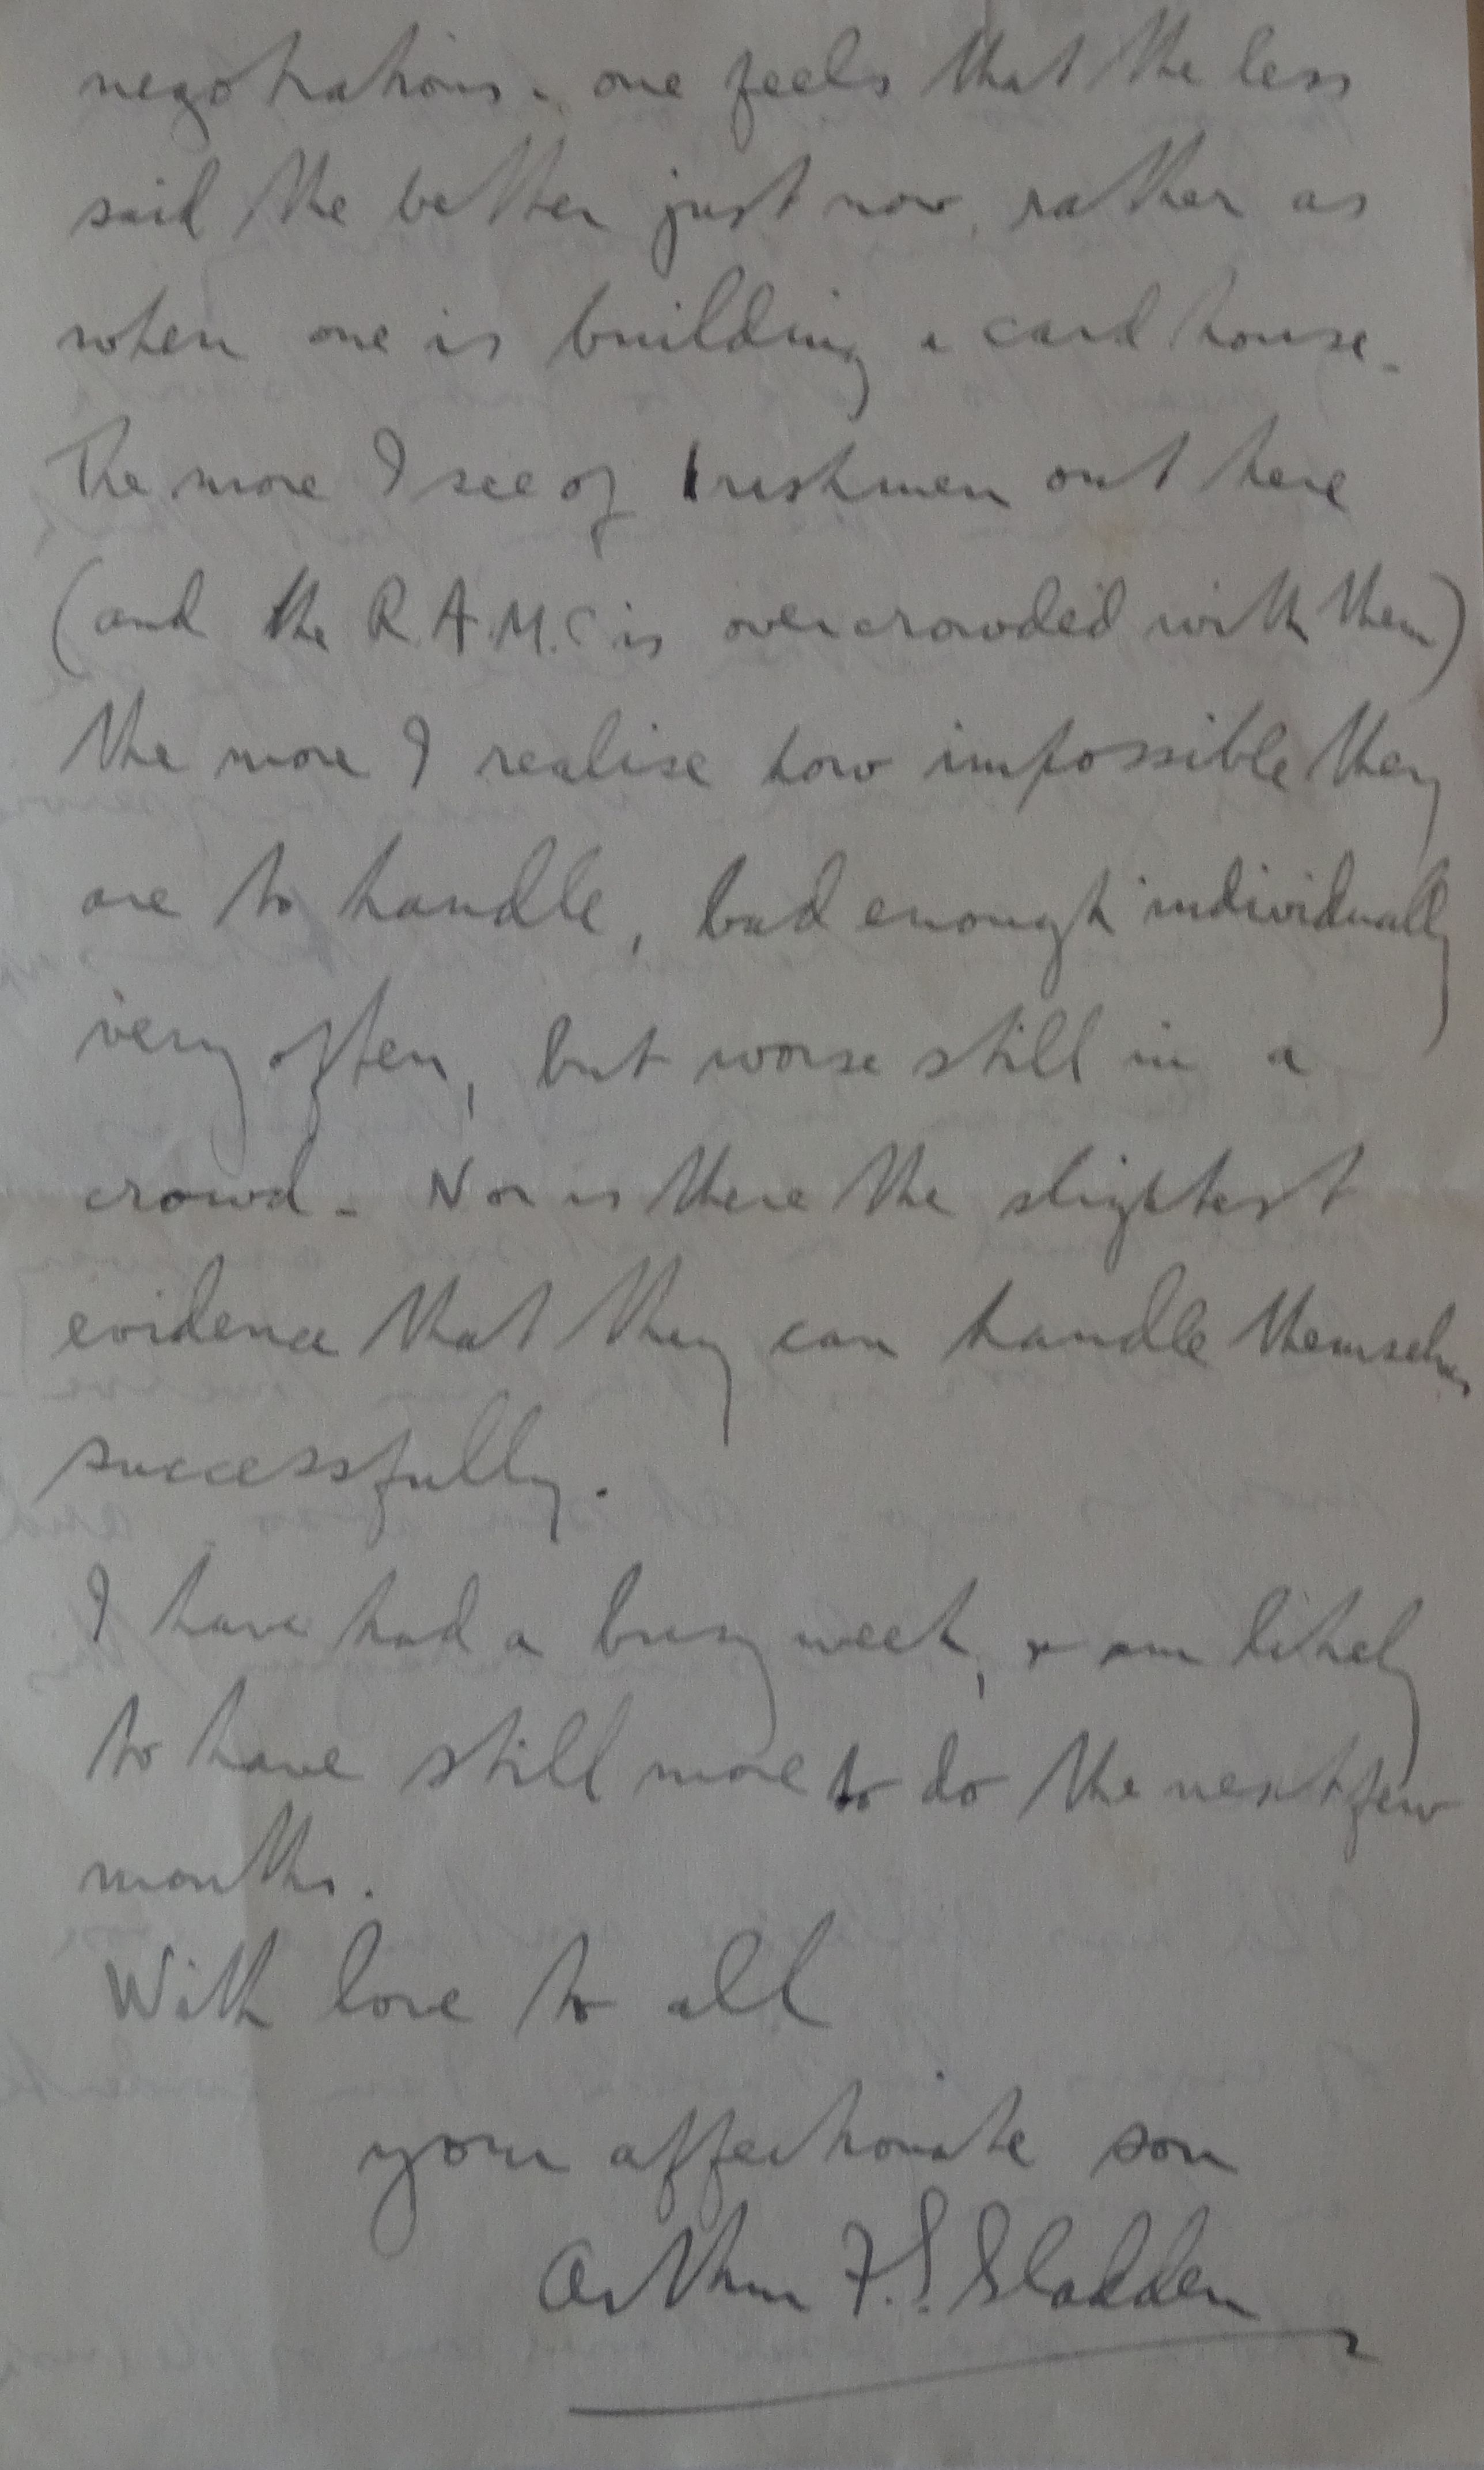 negotiations - one feels that the less
said the better just now, rather as
when one is building a card house.
The more I see of Irishmen out here
(and the R.A.M.C is overcrowded with them)
the more I realise how impossible they
are to handle, bad enough individually
very often, but worse still in a
crowd - Nor is there the slightest
evidence that they can handle themselves
successfully.
I have had a busy week, & am likely
to have still more to do the next few
months.
With love to all
your affectionate son
Arthur F.S. Sladden